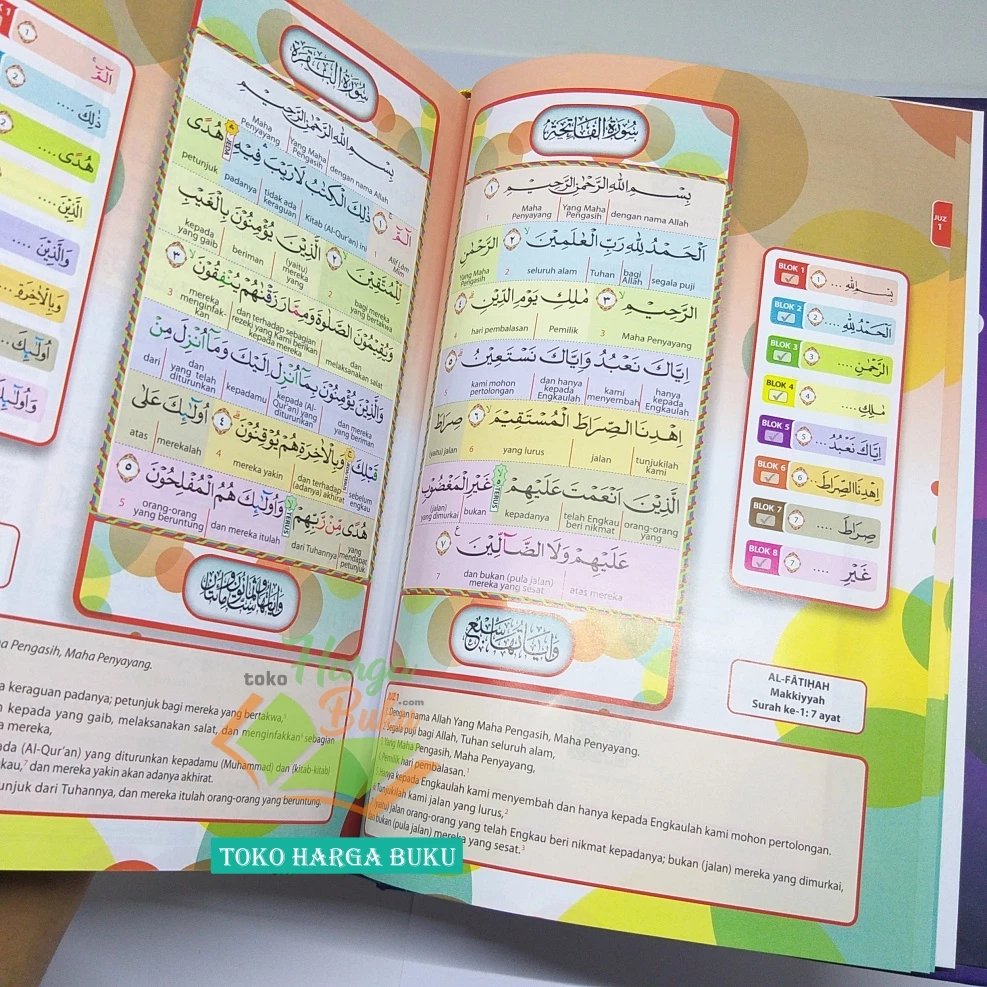 سُورَةُ الْفَاتِحَةِ
بِسْمِ اللّٰهِ الرَّحْمٰنِ الرَّحِيْمِ ١
1 Maha Penyayang Yang Maha Pengasih dengan nama Allah
اَلْحَمْدُ لِلّٰهِ رَبِّ الْعٰلَمِيْنَ ٢ الرَّحْمٰنِ
Yang Maha Pengasih 2 seluruh alam Tuhan bagi Allah segala puji
الرَّحِيْمِ ٣ مٰلِكِ يَوْمِ الدِّيْنِ ٤
4 hari pembalasan Pemilik 3 Maha Penyayang
اِيَّاكَ نَعْبُدُ وَاِيَّاكَ نَسْتَعِيْنُ ٥
5 kami mohon pertolongan dan hanya kepada Engkaulah kami menyembah hanya kepada Engkaulah
اِهْدِنَا الصِّرَاطَ الْمُسْتَقِيْمَ ٦ صِرَاطَ
(yaitu) jalan 6 yang lurus jalan tunjukilah kami
الَّذِيْنَ اَنْعَمْتَ عَلَيْهِمْ غَيْرِ الْمَغْضُوْبِ
TERUS
(jalan) yang dimurkai bukan kepadanya telah Engkau beri nikmat orang-orang yang
عَلَيْهِمْ وَلَا الضَّاۤلِّيْنَ ٧
7 dan bukan (pula jalan) mereka yang sesat atas mereka
وَاٰيَاتُهَا سَبْعٌ
JUZ 1
BLOK 1 بِسْمِ اللّٰهِ .... 1
BLOK 2 اَلْحَمْدُ لِلّٰهِ .... 2
BLOK 3 الرَّحْمٰنِ .... 3
BLOK 4 مٰلِكِ .... 4
BLOK 5 اِيَّاكَ نَعْبُدُ .... 5
BLOK 6 اِهْدِنَا الصِّرَاطَ .... 6
BLOK 7 صِرَاطَ .... 7
BLOK 8 غَيْرِ .... 7
AL-FĀTIḤAH
Makkiyyah
Surah ke-1: 7 ayat
JUZ 1
Dengan nama Allah Yang Maha Pengasih, Maha Penyayang.
Segala puji bagi Allah, Tuhan seluruh alam,
Yang Maha Pengasih, Maha Penyayang,
Pemilik hari pembalasan.¹
Hanya kepada Engkaulah kami menyembah dan hanya kepada Engkaulah kami mohon pertolongan.
Tunjukilah kami jalan yang lurus,²
(yaitu) jalan orang-orang yang telah Engkau beri nikmat kepadanya; bukan (jalan) mereka yang dimurkai,
bukan (pula jalan) mereka yang sesat.³
سُورَةُ الْبَقَرَةِ
بِسْمِ اللّٰهِ الرَّحْمٰنِ الرَّحِيْمِ
Maha Penyayang Yang Maha Pengasih dengan nama Allah
الۤمّۤ ١ ذٰلِكَ الْكِتٰبُ لَا رَيْبَ فِيْهِ هُدًى
petunjuk padanya tidak ada keraguan Kitab (Al-Qur'an) ini 1 Alif Lām Mīm
لِّلْمُتَّقِيْنَ ٢ الَّذِيْنَ يُؤْمِنُوْنَ بِالْغَيْبِ
kepada yang gaib beriman (yaitu) mereka yang 2 bagi mereka yang bertakwa
وَيُقِيْمُوْنَ الصَّلٰوةَ وَمِمَّا رَزَقْنٰهُمْ يُنْفِقُوْنَ ٣
3 mereka menginfak-kan dan terhadap sebagian rezeki yang Kami berikan kepada mereka dan melaksanakan salat
وَالَّذِيْنَ يُؤْمِنُوْنَ بِمَآ اُنْزِلَ اِلَيْكَ وَمَآ اُنْزِلَ مِنْ
dari dan yang telah diturunkan kepadamu kepada (Al-Qur'an) yang diturunkan dan mereka yang beriman
قَبْلِكَ وَبِالْاٰخِرَةِ هُمْ يُوْقِنُوْنَ ٤ اُولٰۤىِٕكَ عَلٰى
atas merekalah 4 mereka yakin dan terhadap (adanya) akhirat sebelum engkau
هُدًى مِّنْ رَّبِّهِمْ وَاُولٰۤىِٕكَ هُمُ الْمُفْلِحُوْنَ ٥
TERUS
5 orang-orang yang beruntung dan mereka itulah dari Tuhannya yang mendapat petunjuk
Maha Pengasih, Maha Penyayang.
keraguan padanya; petunjuk bagi mereka yang bertakwa,²
kepada yang gaib, melaksanakan salat, dan menginfakkan⁶ sebagian
mereka,
(Al-Qur'an) yang diturunkan kepadamu (Muhammad) dan (kitab-kitab)
kau,⁷ dan mereka yakin akan adanya akhirat.
unjuk dari Tuhannya, dan mereka itulah orang-orang yang beruntung.
الۤمّۤ 1
ذٰلِكَ .... 2
هُدًى .... 2
الَّذِيْنَ ....
وَالَّذِيْنَ ....
وَبِالْاٰخِرَةِ ....
اُولٰۤىِٕكَ ....
وَاُولٰۤىِٕكَ
toko Harga Buku .com
TOKO HARGA BUKU